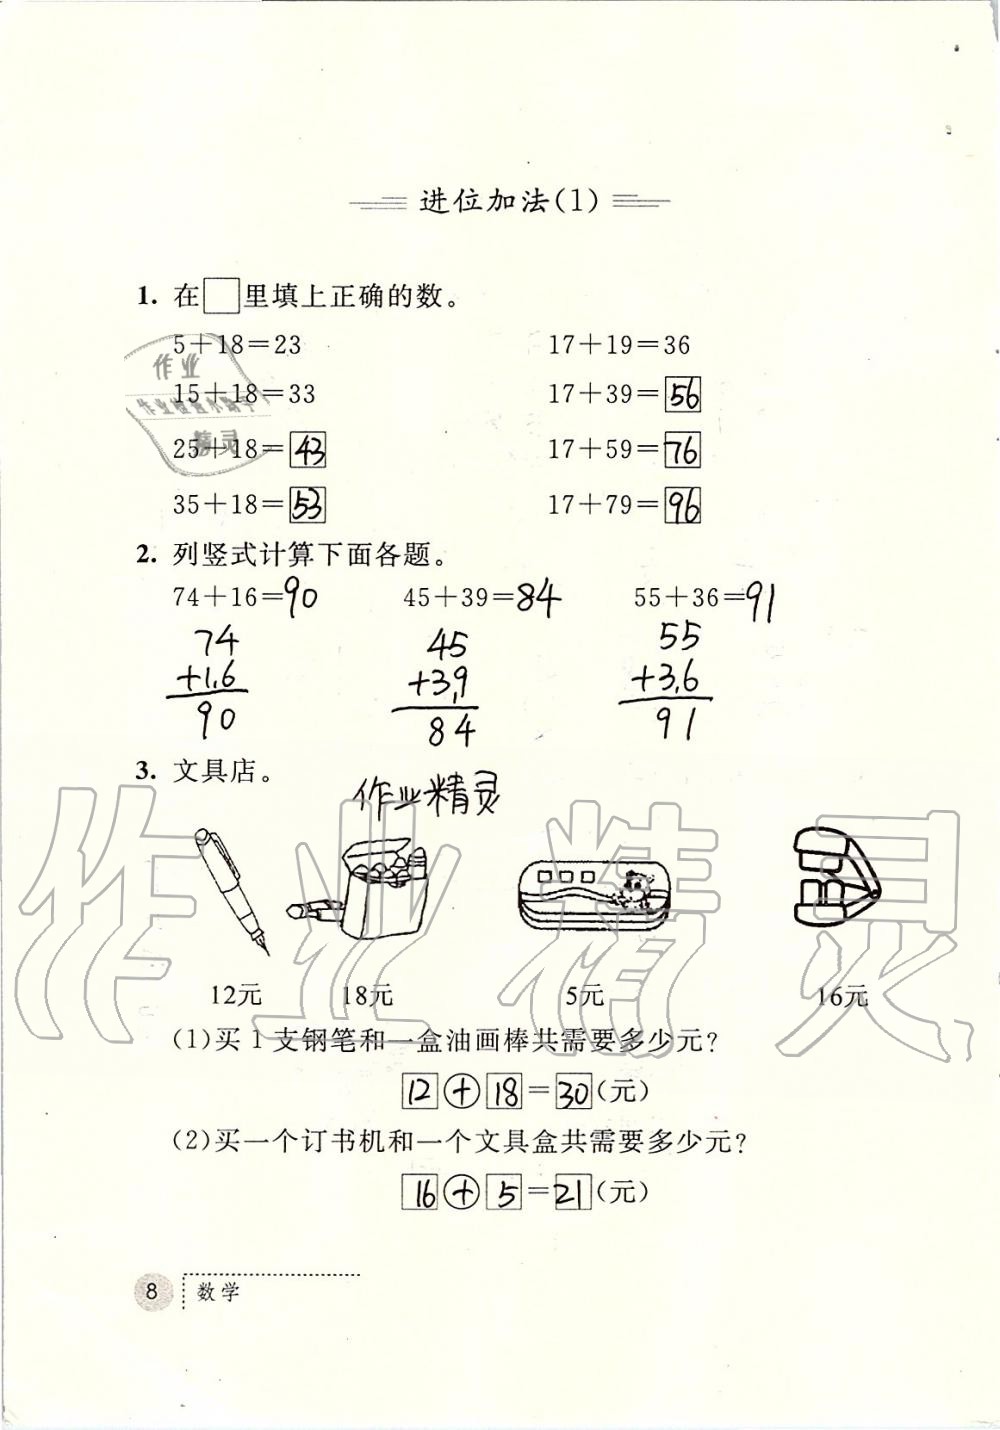 进位加法(1)
1. 在□里填上正确的数。
5+18=23 17+19=36
15+18=33 17+39=56
25+18=43 17+59=76
35+18=53 17+79=96
2. 列竖式计算下面各题。
74+16=90 45+39=84 55+36=91
74 45 55
+1.6 +3,9 +3,6
90 84 91
3. 文具店。
作业精灵
12元 18元 5元 16元
(1)买1支钢笔和一盒油画棒共需要多少元?
12+18=30(元)
(2)买一个订书机和一个文具盒共需要多少元?
16+5=21(元)
8 数学
作业
精灵
作业精灵